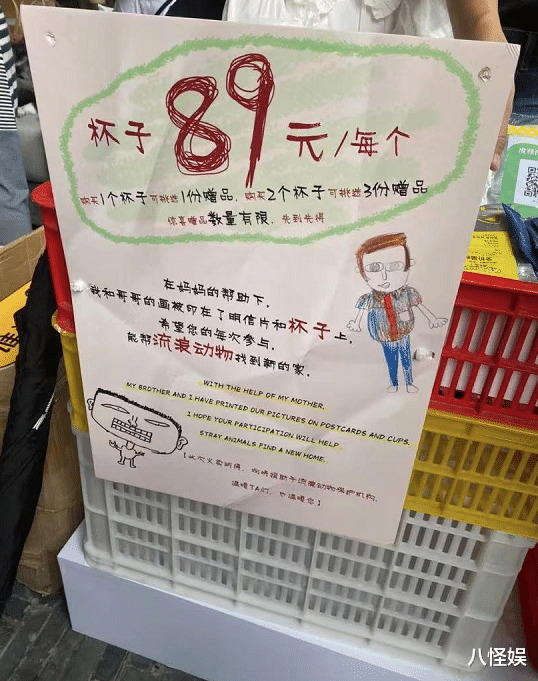 杯子89元/每个
购买1个杯子可挑选1份赠品,购买2个杯子可挑选3份赠品
惊喜赠品数量有限,先到先得
在妈妈的帮助下,
我和哥哥的画被印在了明信片和杯子上,
希望您的每次参与,
能帮流浪动物找到新的家。
WITH THE HELP OF MY MOTHER,
MY BROTHER AND I HAVE PRINTED OUR PICTURES ON POSTCARDS AND CUPS.
I HOPE YOUR PARTICIPATION WILL HELP
STRAY ANIMALS FIND A NEW HOME.
【此次义卖所得,将捐助于流浪动物保护机构,
温暖TA们,也温暖您】
八怪娱